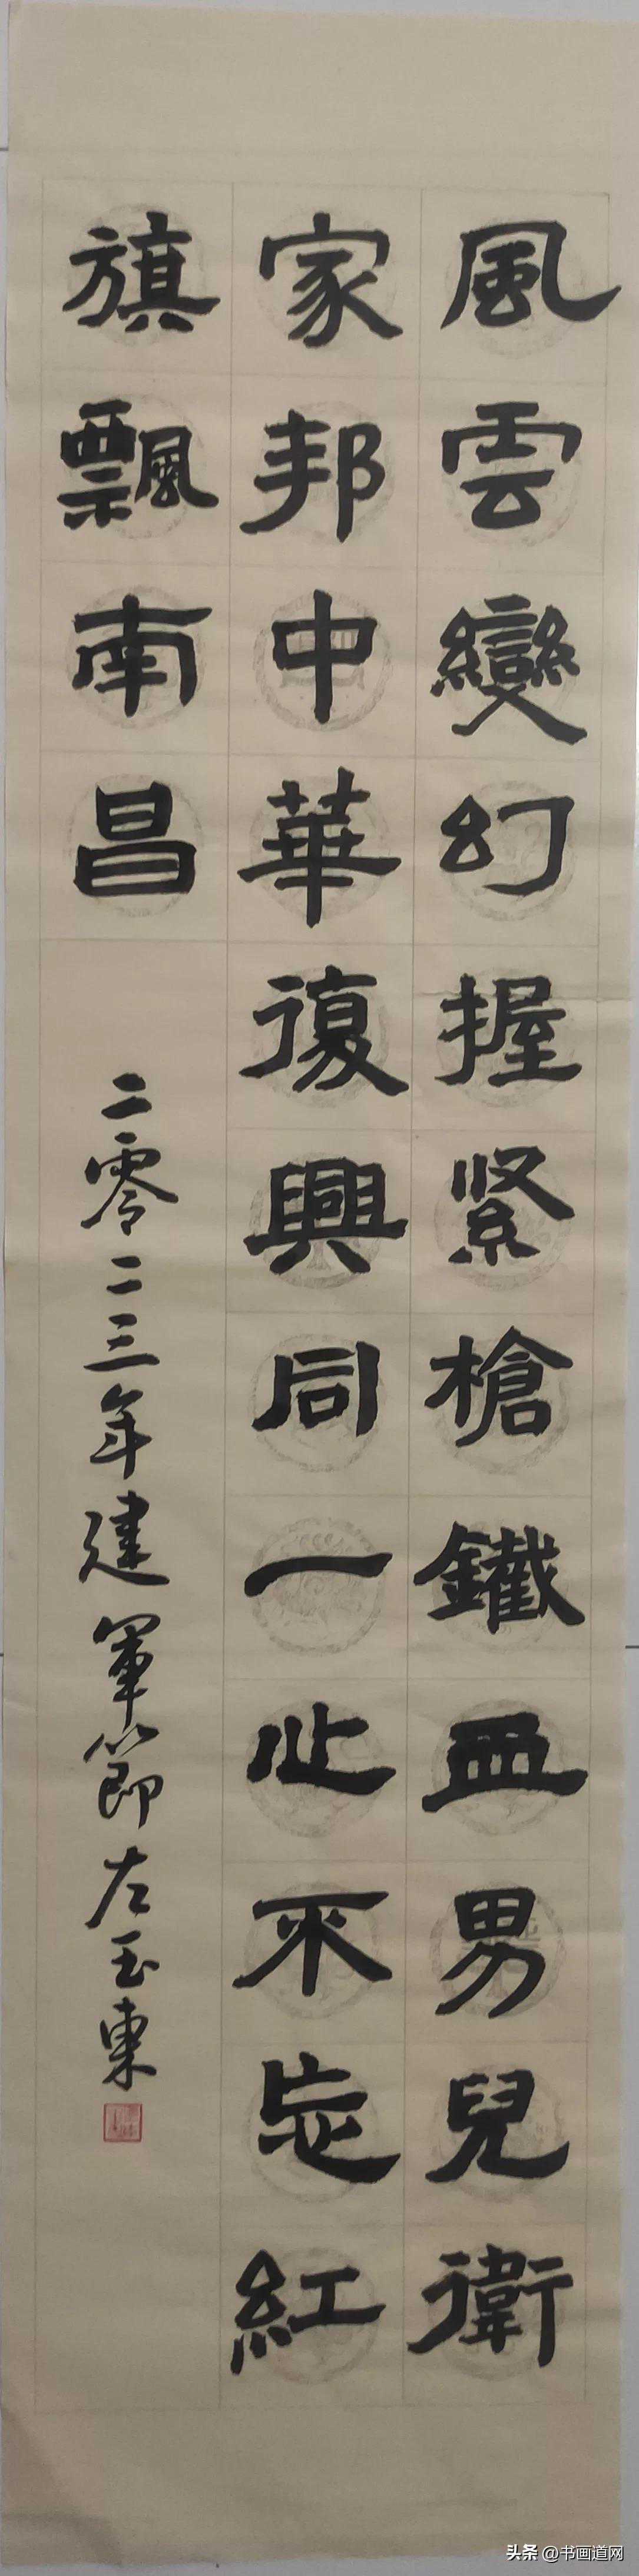 風雲變幻握紧槍鐵血男兒衛
家邦中華復興同一心不忘紅
旗飄南昌
二零二三年建軍節左玉東
头条 @书画道网